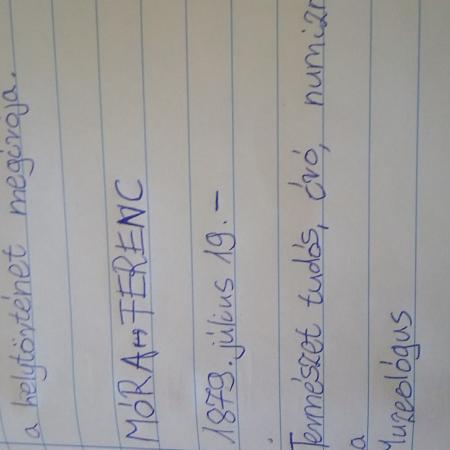 a helytörténet megírója.
MÓRA FERENC
1879. július 19. –
Természet tudós, író, numizm
a
Muzeológus